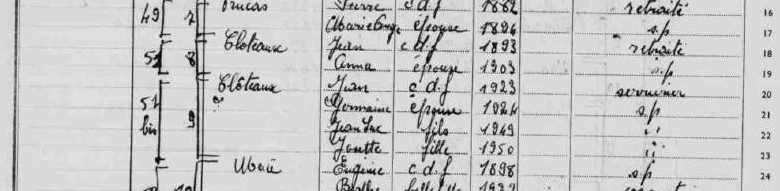 49 7 Pierre c.d.f 1882 retraité 16
Marie Ange épouse 1896 s.p 17
51 8 Cloteaux Jean c.d.f 1893 retraité 18
Anna épouse 1903 s.p 19
51 bis 9 Clôteaux Jean c.d.f 1923 serrurier 20
Germaine épouse 1924 s.p 21
Jean Luc fils 1949 " 22
Josette fille 1950 " 23
Eugène c.d.f 1898 s.p 24